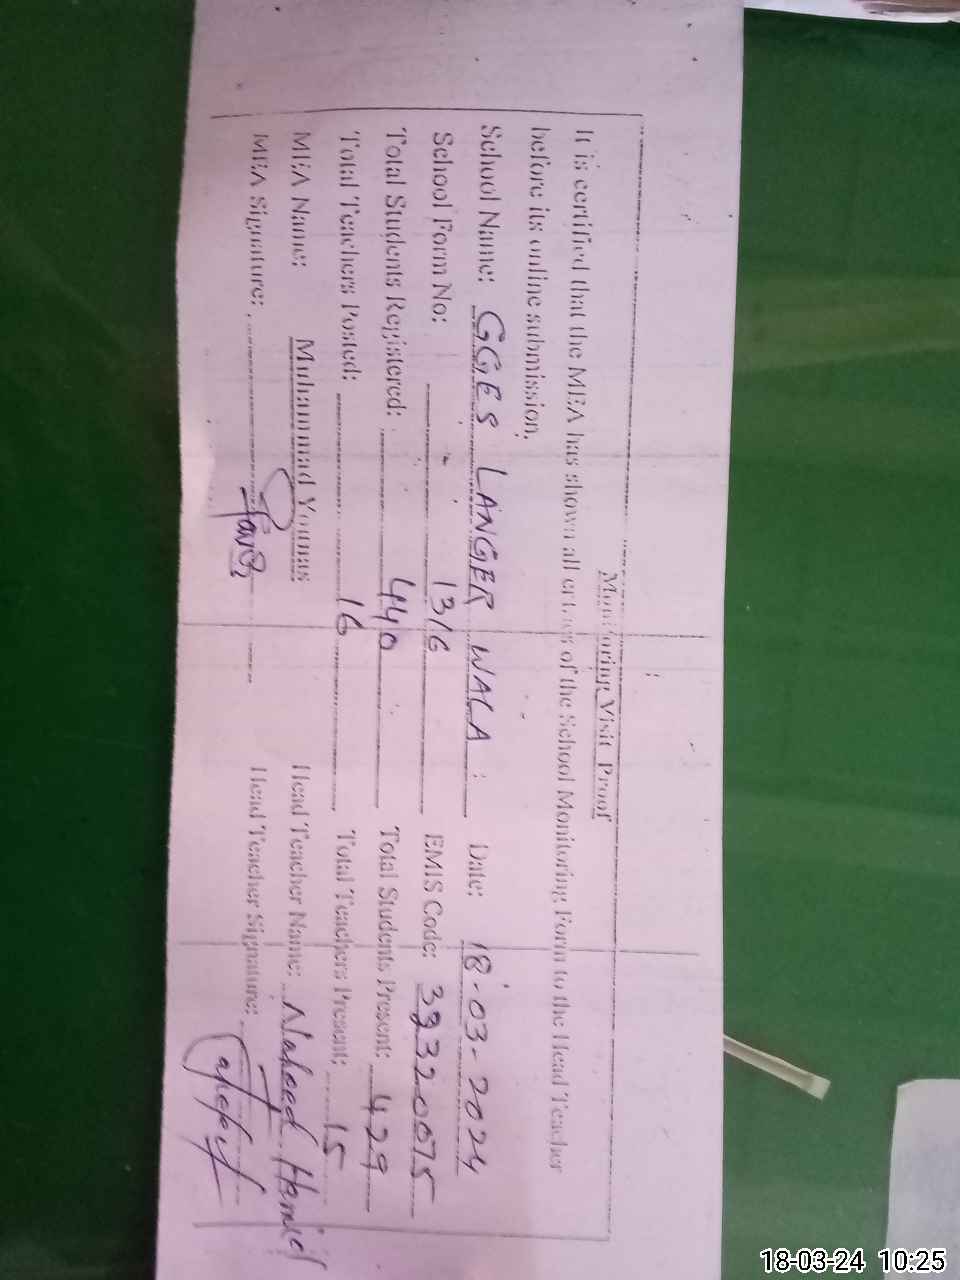 Monitoring Visit Proof
It is certified that the MEA has shown all entries of the School Monitoring Form to the Head Teacher
before its online submission.
School Name: GGES LANGER WALA Date: 18-03-2024
School Form No: 1316 EMIS Code: 39320075
Total Students Registered: 440 Total Students Present: 429
Total Teachers Posted: 16 Total Teachers Present: 15
MEA Name: Muhammad Younas Head Teacher Name: Naheed Hamid
MEA Signature: Head Teacher Signature:
18-03-24 10:25